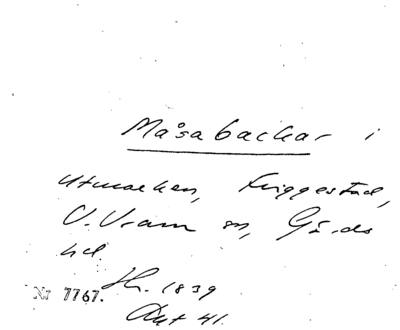 Måsabackar i
utmarken, Friggestad,
V. Vram sn, Gärds
hd.
Nr 7767.
Sk. 1839
Aut 41.